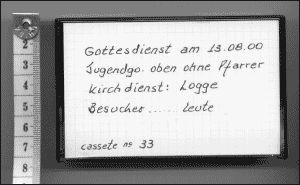 Gottesdienst am 13.08.00
Jugendgo. oben ohne Pfarrer
Kirchdienst: Logge
Besucher ...... leute
cassete nº 33
2
3
4
5
6
7
8